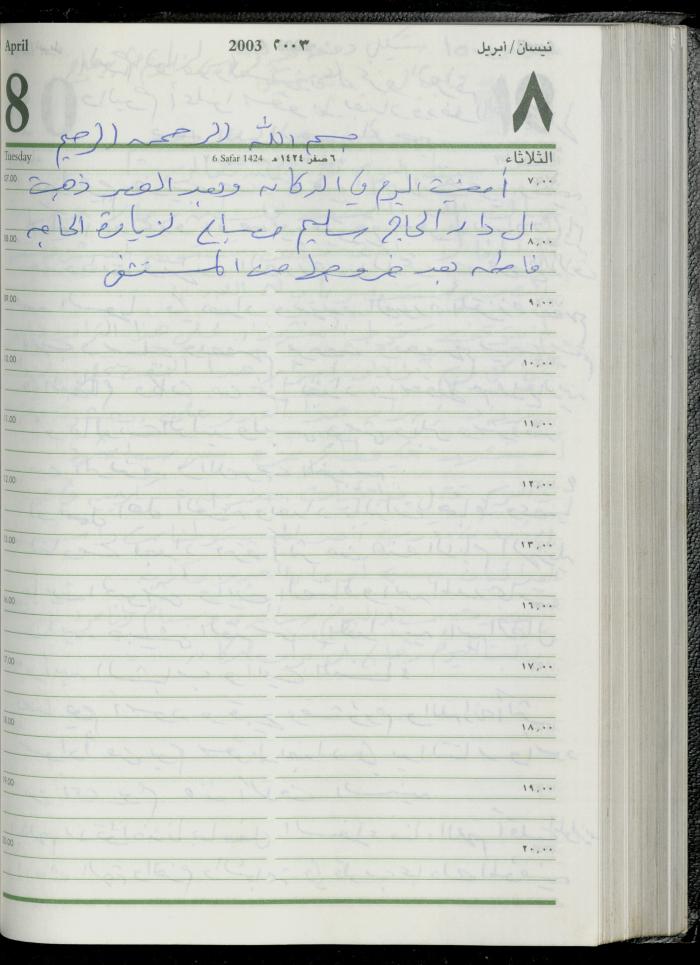 April 2003 ٢٠٠٣ نيسان / أبريل
8 ٨
بسم الله الرحمن الرحيم
Tuesday 6 Safar 1424 ٦ صفر ١٤٢٤ هـ الثلاثاء
07.00 ٧,٠٠
أمضيت اليوم في الدكان وبعد العصر ذهبت
الى دار الحاج سليم لزيارة الحاجه
08.00 ٨,٠٠
فاطمه بعد خروجها من المستشفى
09.00 ٩,٠٠
10.00 ١٠,٠٠
11.00 ١١,٠٠
12.00 ١٢,٠٠
13.00 ١٣,٠٠
16.00 ١٦,٠٠
17.00 ١٧,٠٠
18.00 ١٨,٠٠
19.00 ١٩,٠٠
20.00 ٢٠,٠٠